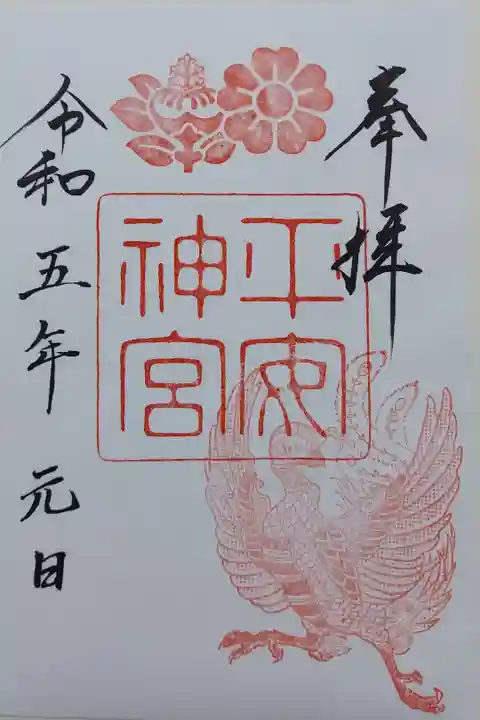 奉拝
平安神宮
令和五年元日